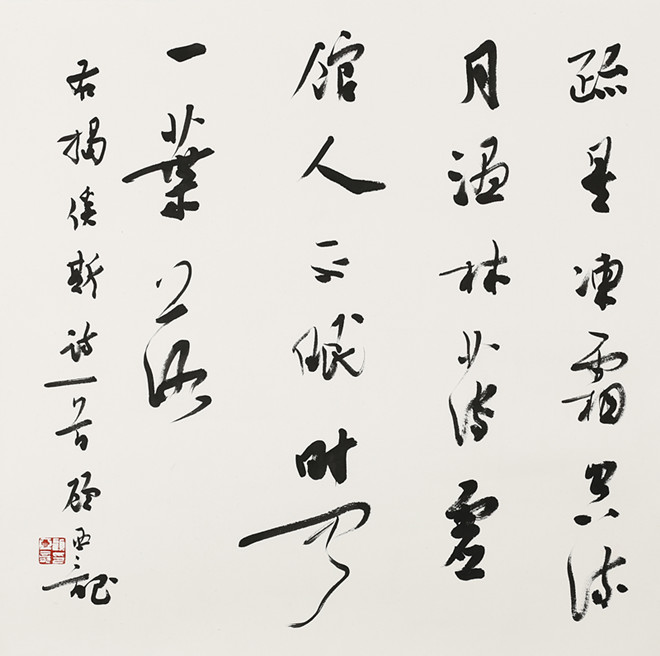 疏星凍霜空流
月湿林薄虚
館人不眠时闻
一葉落
右揭傒斯诗一首顾亚龙